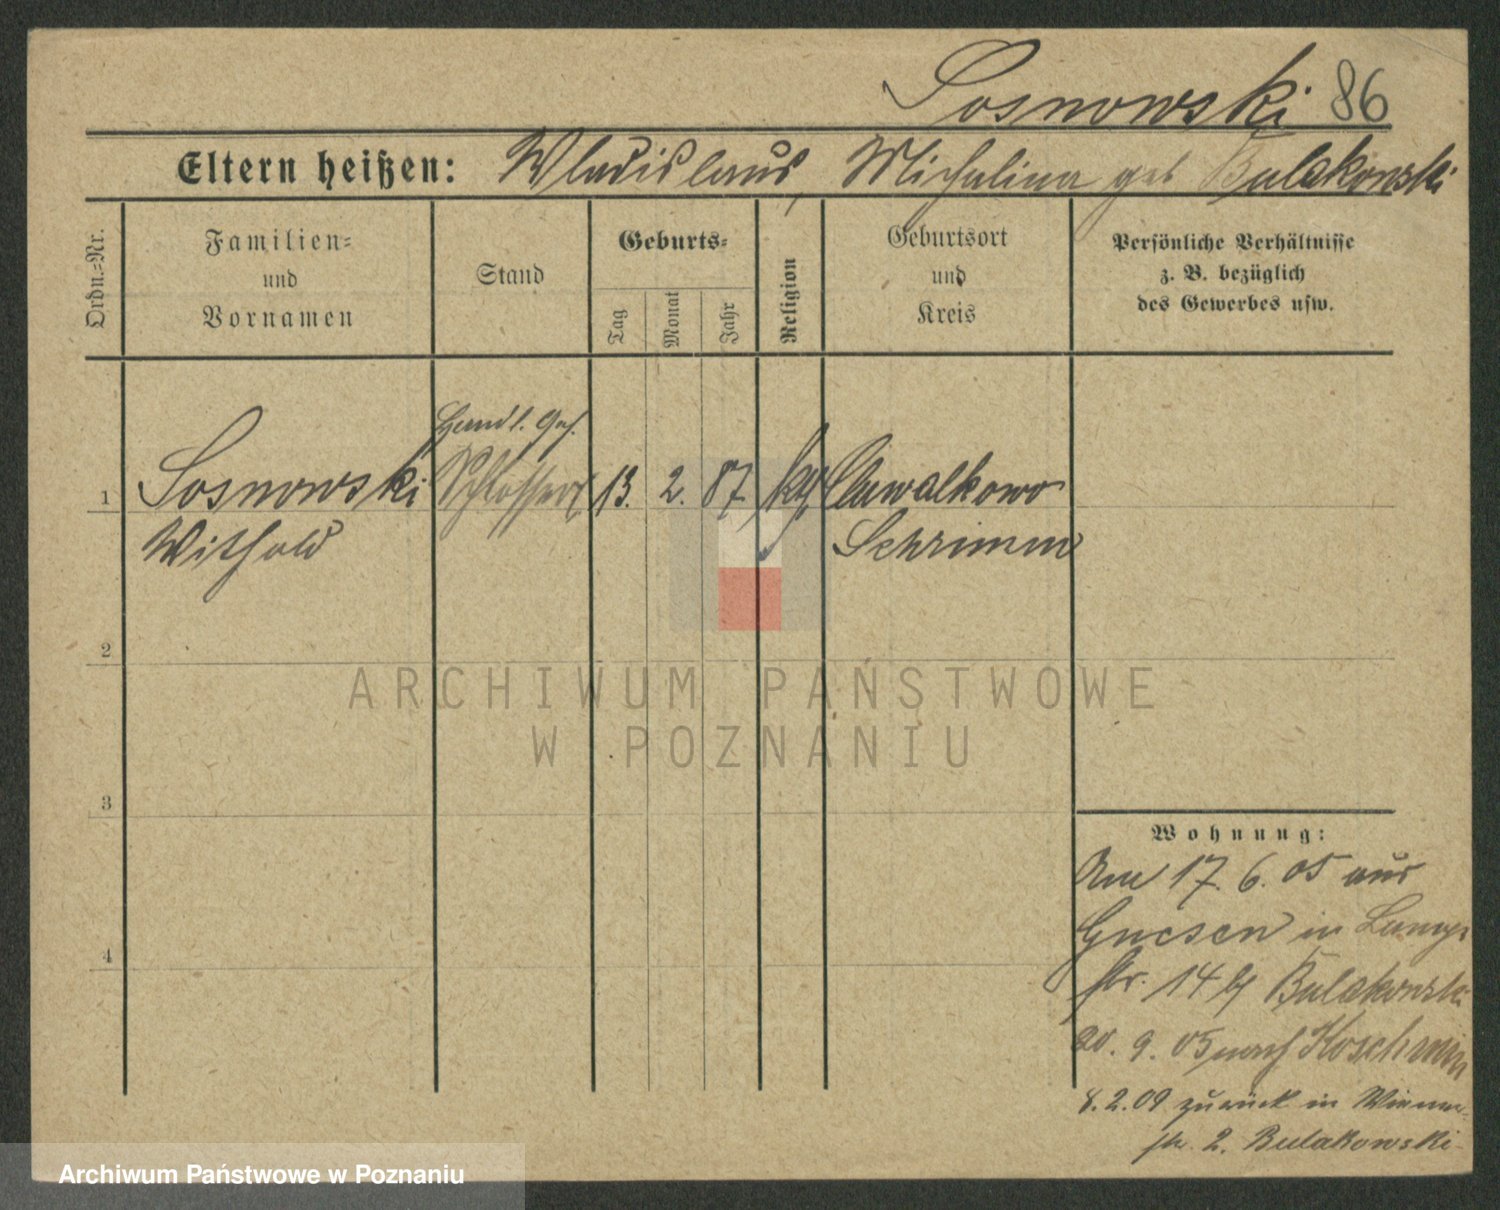 Sosnowski 86
Eltern heißen: Wladislaus, Michalina geb Bulakowski
Ordn.-Nr.
Familien-
und
Vornamen
Stand
Geburts-
Tag
Monat
Jahr
Religion
Geburtsort
und
Kreis
Persönliche Verhältnisse
z. B. bezüglich
des Gewerbes usw.
Handl. Geh.
1 Sosnowski Schlosser 13. 2. 87 kth Chwalkowo
Withold Schrimm
2
3
4
Wohnung:
Am 17. 6. 05 aus
Gnesen in
str. 14 b/ Bulakowski
20. 9. 05 nach Koschmin
8. 2. 09 zurück in Wiener-
str. 2. Bulakowski
ARCHIWUM PAŃSTWOWE
W POZNANIU
Archiwum Państwowe w Poznaniu